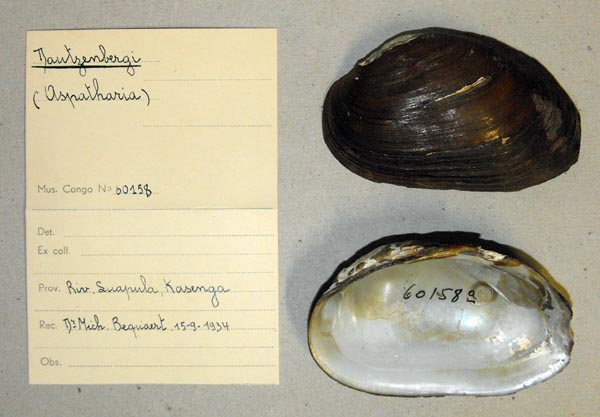 Dautzenbergi
(Aspatharia)
Mus. Congo No 60158
Det.
Ex coll.
Prov. Riv. Luapula, Kasenga
Rec. Dr Mich. Bequaert 15-9-1934
Obs.
60158a